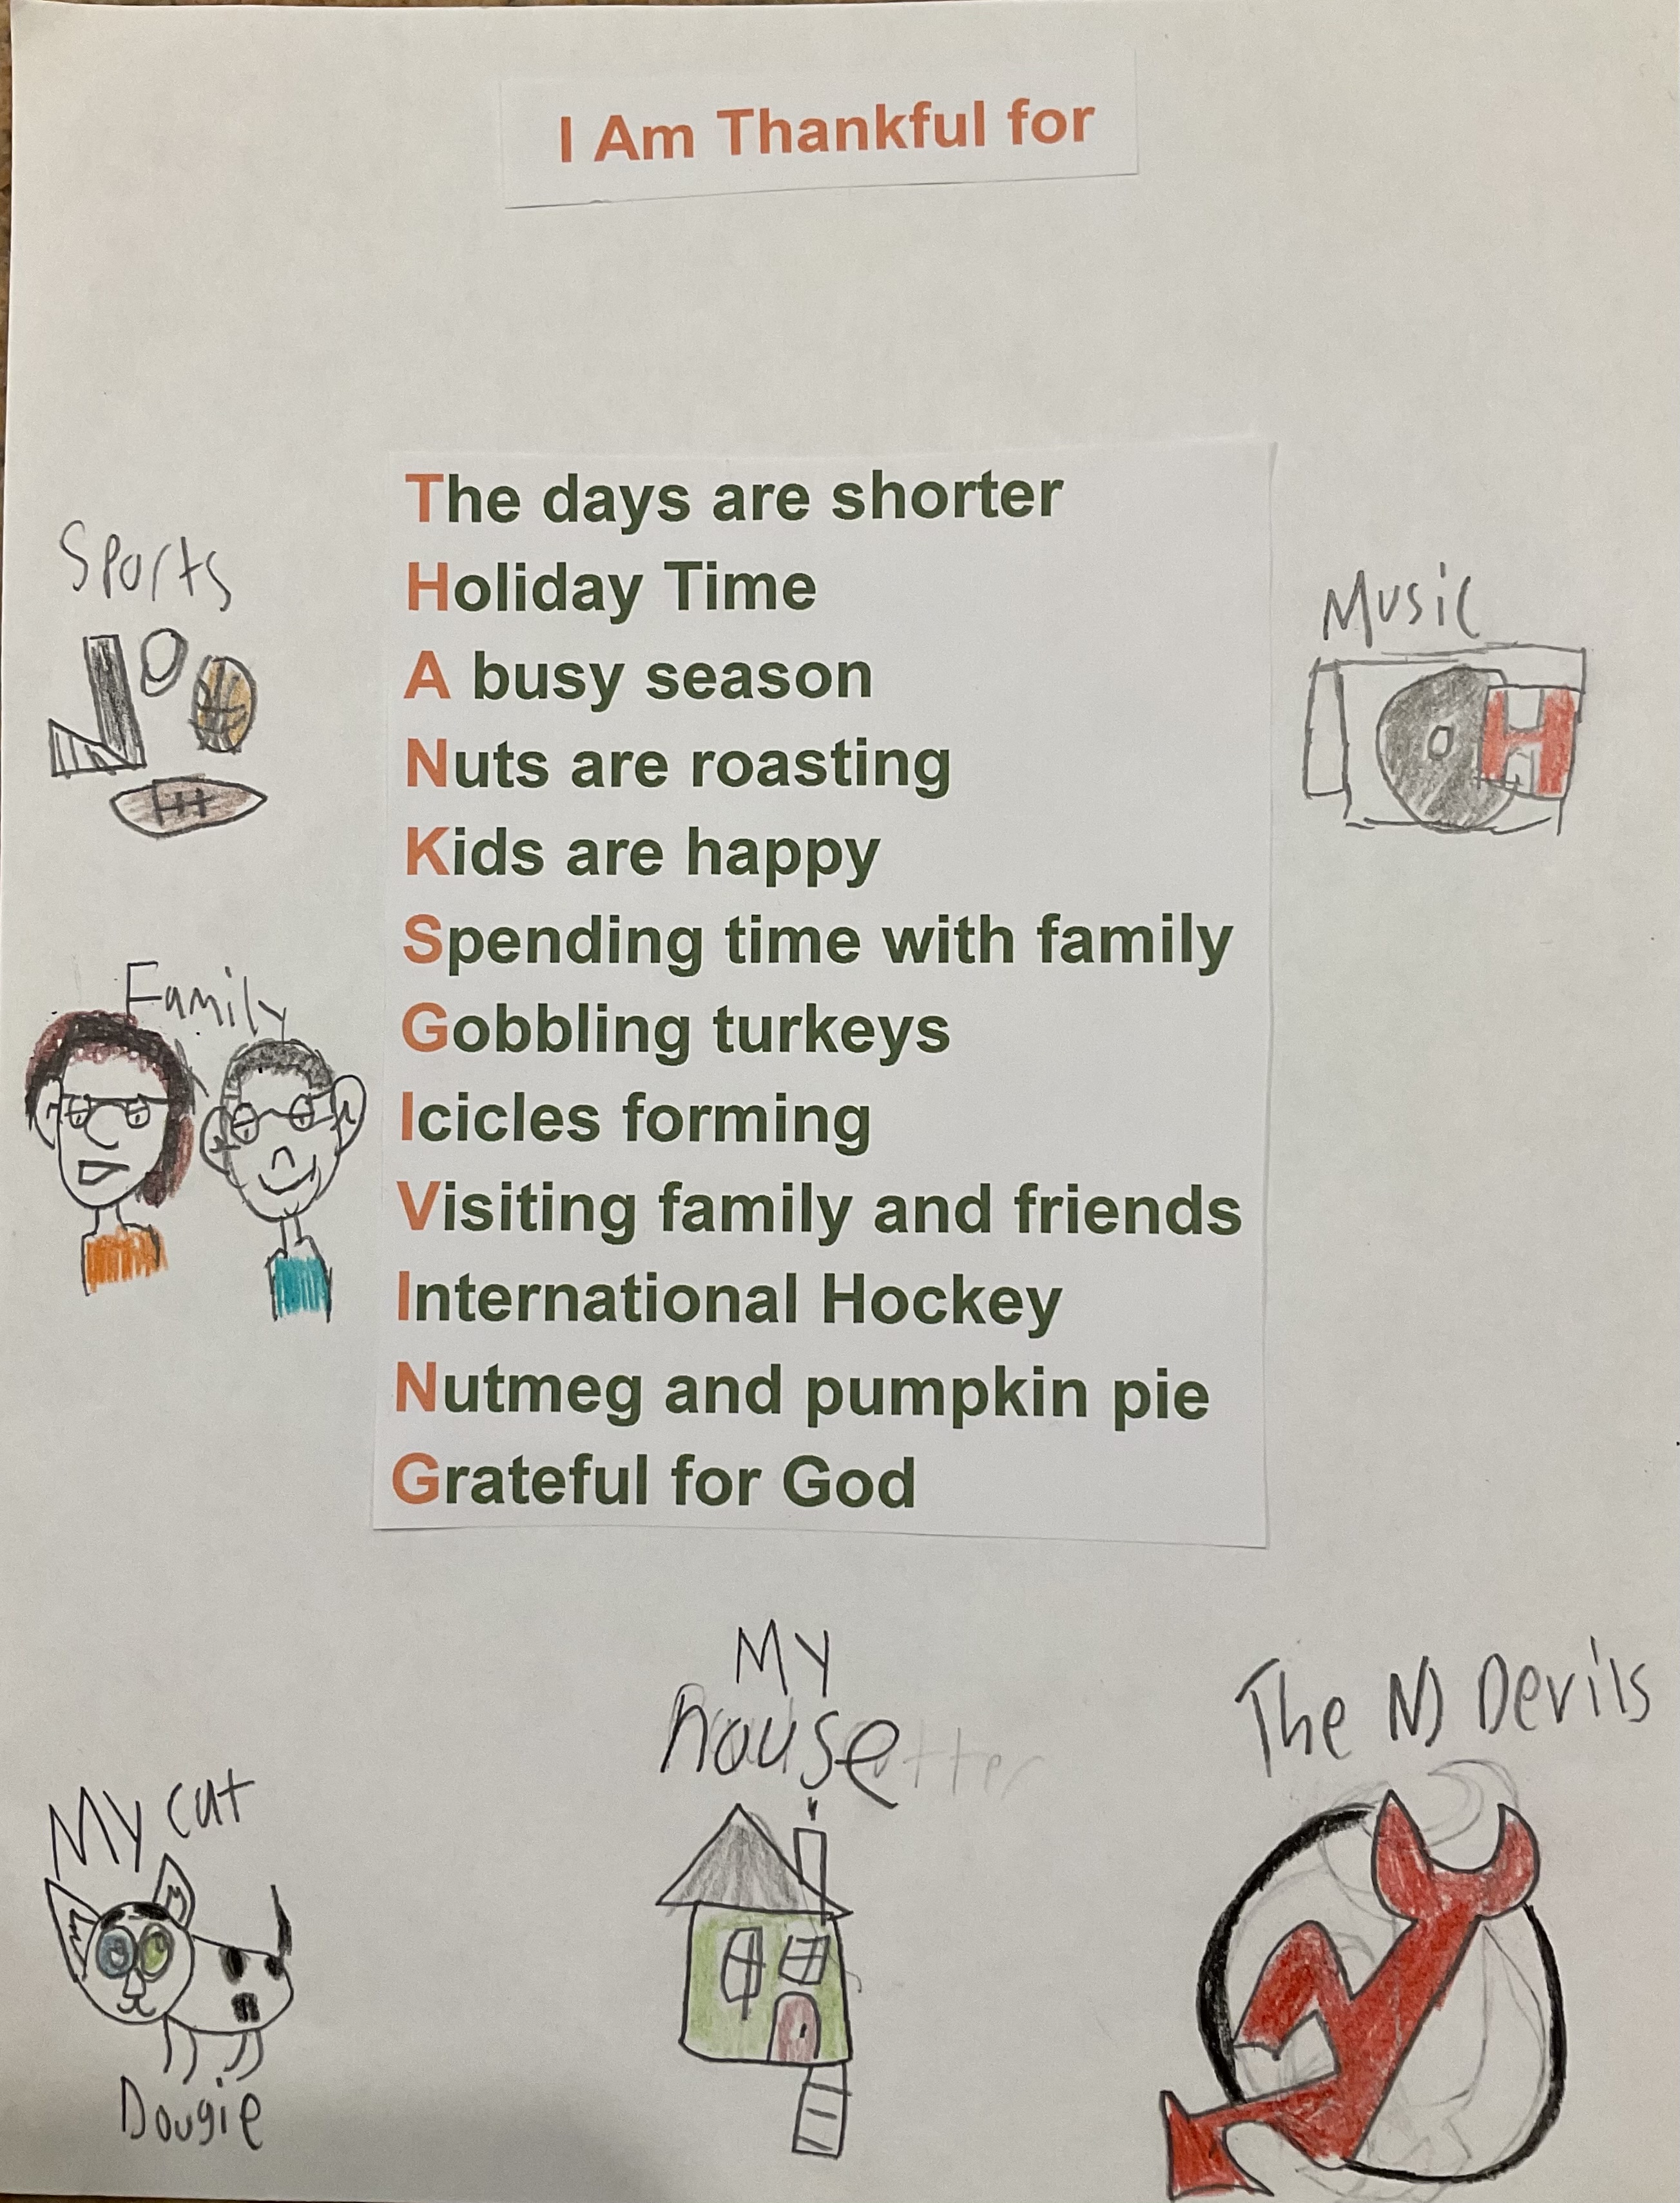 I Am Thankful for
The days are shorter
Holiday Time
A busy season
Nuts are roasting
Kids are happy
Spending time with family
Gobbling turkeys
Icicles forming
Visiting family and friends
International Hockey
Nutmeg and pumpkin pie
Grateful for God
Sports
Music
H
Family
My
house
The NJ Devils
My cat
Dougie